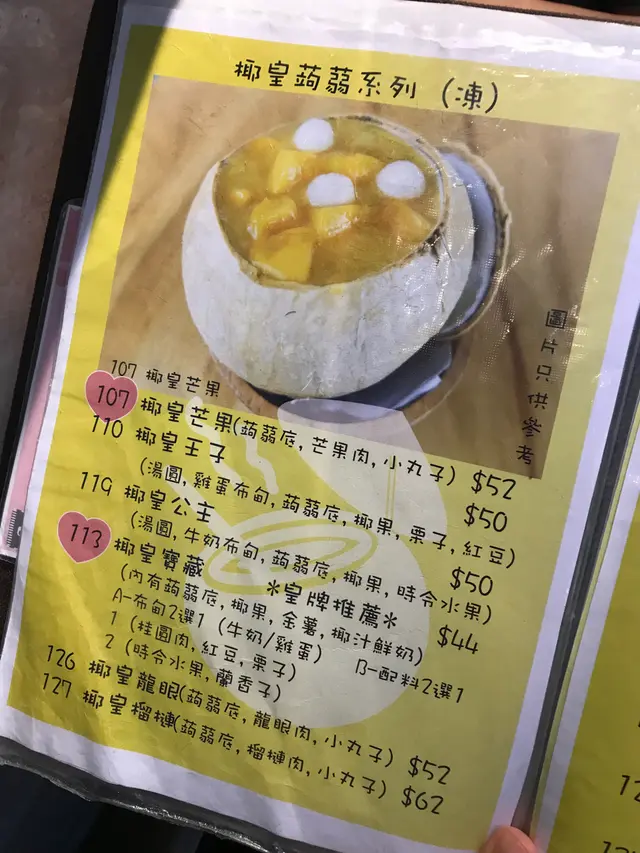 椰皇蒟蒻系列 (凍)
圖片只供參考
107 椰皇芒果
107 椰皇芒果(蒟蒻底, 芒果肉, 小丸子) $52
110 椰皇王子 $50
(湯圓, 雞蛋布甸, 蒟蒻底, 椰果, 栗子, 紅豆)
119 椰皇公主 $50
(湯圓, 牛奶布甸, 蒟蒻底, 椰果, 時令水果)
113 椰皇寶藏 *皇牌推薦* $44
(內有蒟蒻底, 椰果, 金薯, 椰汁鮮奶)
A-布甸2選1 (牛奶/雞蛋) B-配料2選1
1 (桂圓肉, 紅豆, 栗子)
2 (時令水果, 蘭香子)
126 椰皇龍眼(蒟蒻底, 龍眼肉, 小丸子) $52
127 椰皇榴槤(蒟蒻底, 榴槤肉, 小丸子) $62